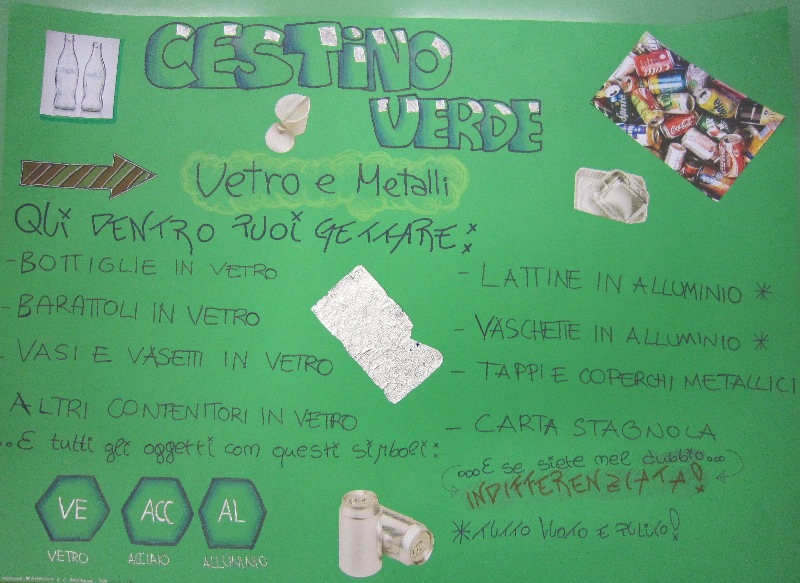 CESTINO
VERDE
Vetro e Metalli
QUI DENTRO PUOI GETTARE:
-BOTTIGLIE IN VETRO
-BARATTOLI IN VETRO
- VASI E VASETTI IN VETRO
ALTRI CONTENITORI IN VETRO
...E tutti gli oggetti con questi simboli:
VE ACC AL
VETRO ACCIAIO ALLUMINIO
- LATTINE IN ALLUMINIO *
- VASCHETTE IN ALLUMINIO *
- TAPPI E COPERCHI METALLICI
- CARTA STAGNOLA
...E se siete nel dubbio...
INDIFFERENZIATA!
*TUTTO VUOTO E PULITO!